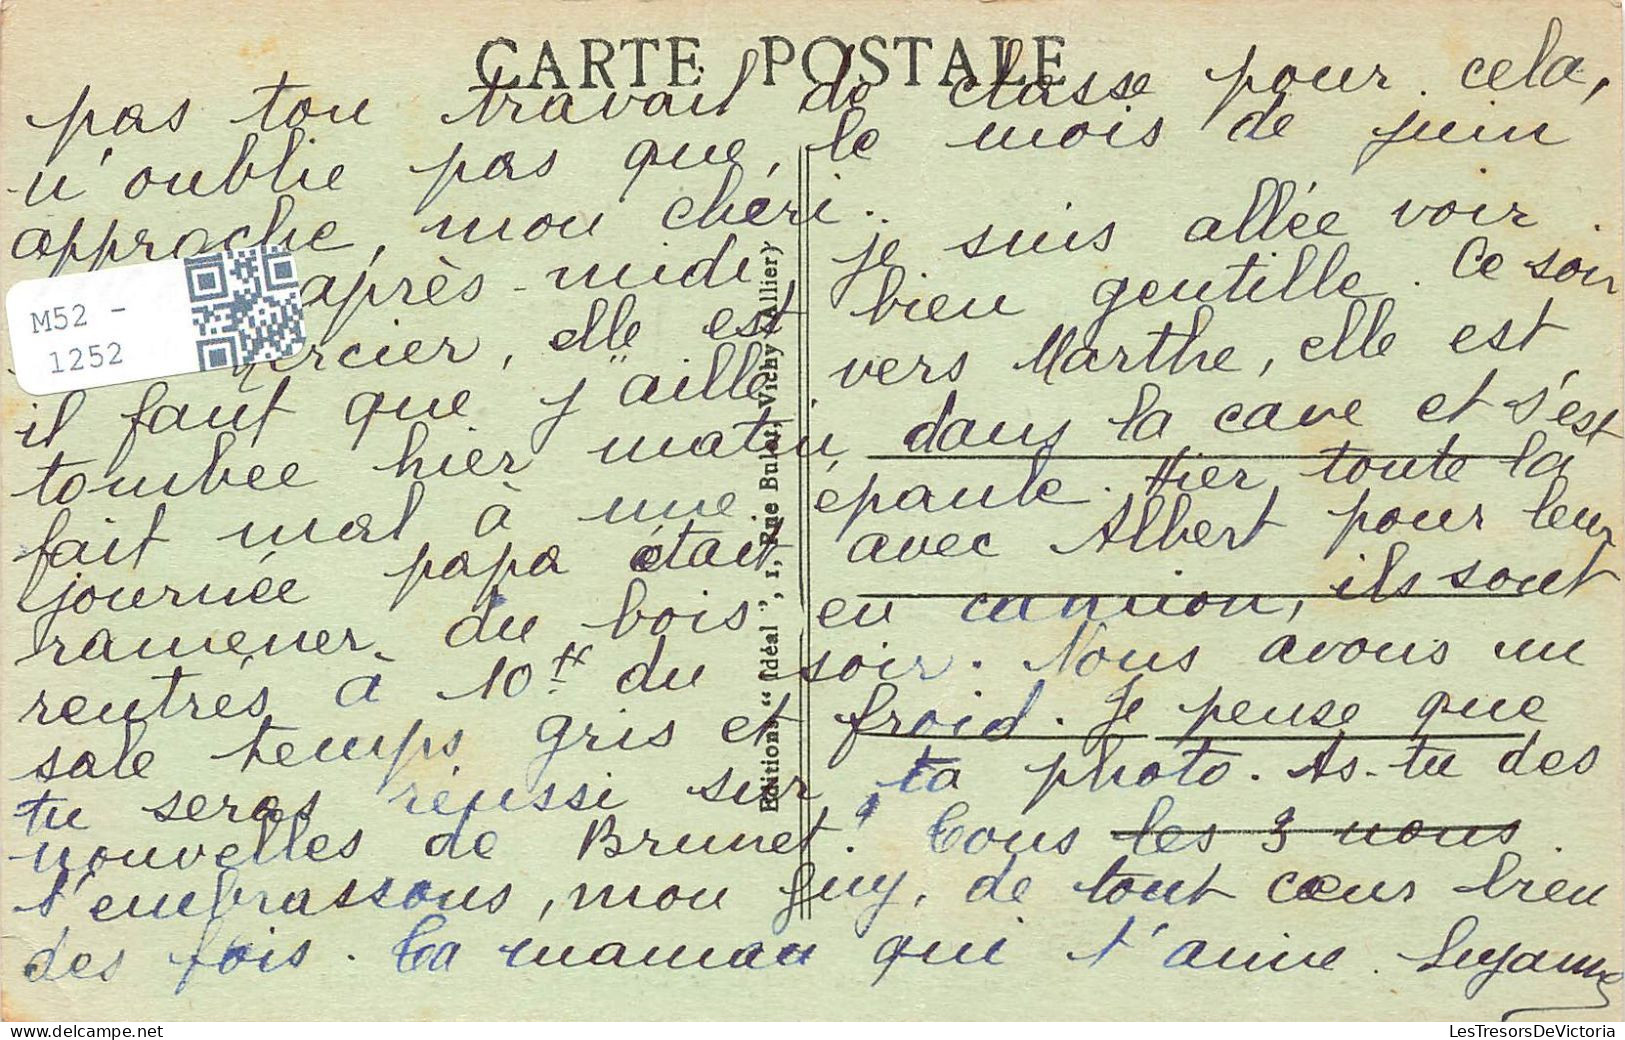 CARTE POSTALE
pas ton travail de classe pour cela,
n'oublie pas que, le mois de juin
approche, mon chéri..
après-midi je suis allée voir
rcier, elle est bien gentille. Ce soir
il faut que j'aille vers Marthe, elle est
tombée hier matin, dans la cave et s'est
fait mal à une épaule. Hier toute la
journée papa était avec Albert pour leur
ramener du bois en camion, ils sont
rentrés à 10H du soir. Nous avons un
sale temps gris et froid. Je pense que
tu seras réussi sur ta photo. As-tu des
nouvelles de Brunet? Tous les 3 nous
t'embrassons, mon Guy, de tout cœur bien
des fois. Ta maman qui t'aime. Suzanne
Editions "Idéal", 1, Rue Bulot, Vichy (Allier)
M52 -
1252
LesTresorsDeVictoria